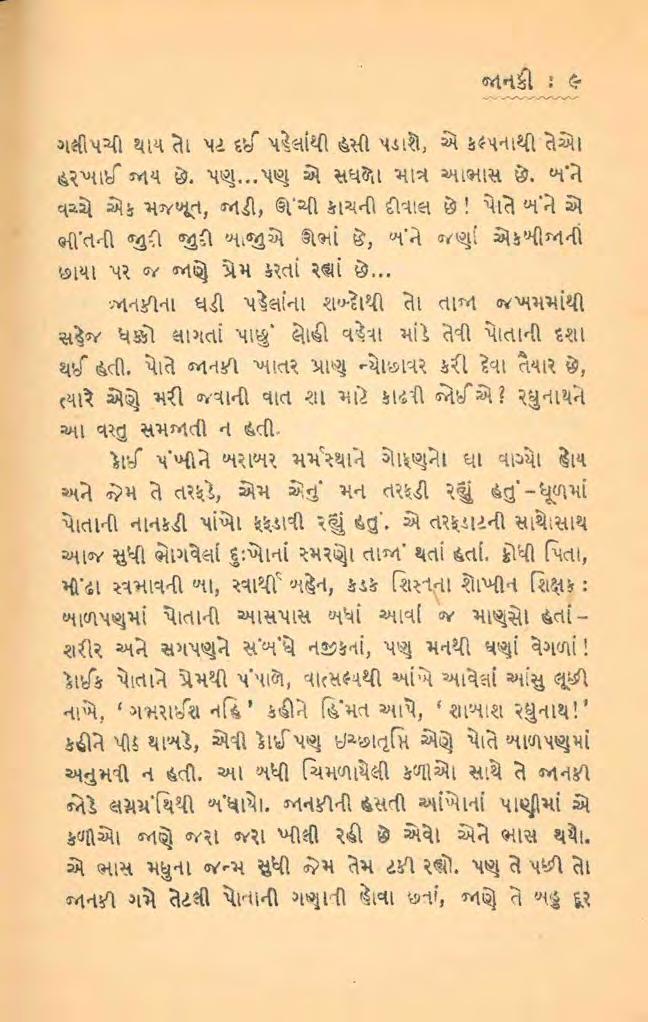 જાનકી : ૯
ગલીપચી થાય તો પટ દઈ પહેલાંથી હસી પડાશે, એ કલ્પનાથી તેઓ
હરખાઈ જાય છે. પણ...પણ એ સઘળો માત્ર આભાસ છે. બંને
વચ્ચે એક મજબૂત, જાડી, ઊંચી કાચની દીવાલ છે! પોતે બંને એ
ભીંતની જુદી જુદી બાજુએ ઊભાં છે, બંને જણાં એકબીજાની
છાયા પર જ જાણે પ્રેમ કરતાં રહ્યાં છે...
જાનકીના ઘડી પહેલાંના શબ્દોથી તો તાજા જખમમાંથી
સહેજ ધક્કો લાગતાં પાછું લોહી વહેવા માંડે તેવી પોતાની દશા
થઈ હતી. પોતે જાનકી ખાતર પ્રાણ ન્યોછાવર કરી દેવા તૈયાર છે,
ત્યારે એણે મરી જવાની વાત શા માટે કાઢવી જોઈએ? રઘુનાથને
આ વસ્તુ સમજાતી ન હતી.
કોઈ પંખીને બરાબર મર્મસ્થાને ગોફણનો ઘા વાગ્યો હોય
અને જેમ તે તરફડે, એમ એનું મન તરફડી રહ્યું હતું–ધૂળમાં
પોતાની નાનકડી પાંખો ફફડાવી રહ્યું હતું. એ તરફડાટની સાથોસાથ
આજ સુધી ભોગવેલાં દુઃખોનાં સ્મરણો તાજાં થતાં હતાં. ક્રોધી પિતા,
મીંઢા સ્વભાવની બા, સ્વાર્થી બહેન, કડક શિસ્તના શોખીન શિક્ષક :
બાળપણમાં પોતાની આસપાસ બધાં આવાં જ માણસો હતાં–
શરીર અને સગપણને સંબંધે નજીકનાં, પણ મનથી ઘણાં વેગળાં!
કોઈક પોતાને પ્રેમથી પંપાળે, વાત્સલ્યથી આંખે આવેલાં આંસુ લૂછી
નાખે, ‘ગભરાઈશ નહિ’ કહીને હિંમત આપે, ‘શાબાશ રઘુનાથ!’
કહીને પીઠ થાબડે, એવી કોઈ પણ ઇચ્છાતૃપ્તિ એણે પોતે બાળપણમાં
અનુભવી ન હતી. આ બધી ચિમળાયેલી કળીઓ સાથે તે જાનકી
જોડે લગ્નગ્રંથિથી બંધાયો. જાનકીની હસતી આંખોનાં પાણીમાં એ
કળીઓ જાણે જરા જરા ખીલી રહી છે એવો એને ભાસ થયો.
એ ભાસ મધુના જન્મ સુધી જેમ તેમ ટકી રહ્યો. પણ તે પછી તો
જાનકી ગમે તેટલી પોતાની ગણાતી હોવા છતાં, જાણે તે બહુ દૂર